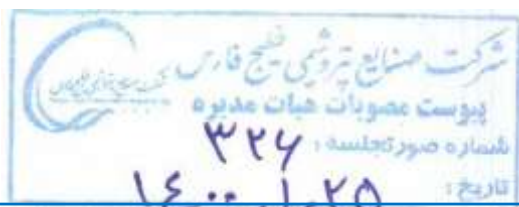 شرکت صنایع پتروشیمی خلیج فارس
پیوست مصوبات هیات مدیره
شماره صورتجلسه : ۳۲۶
تاریخ :